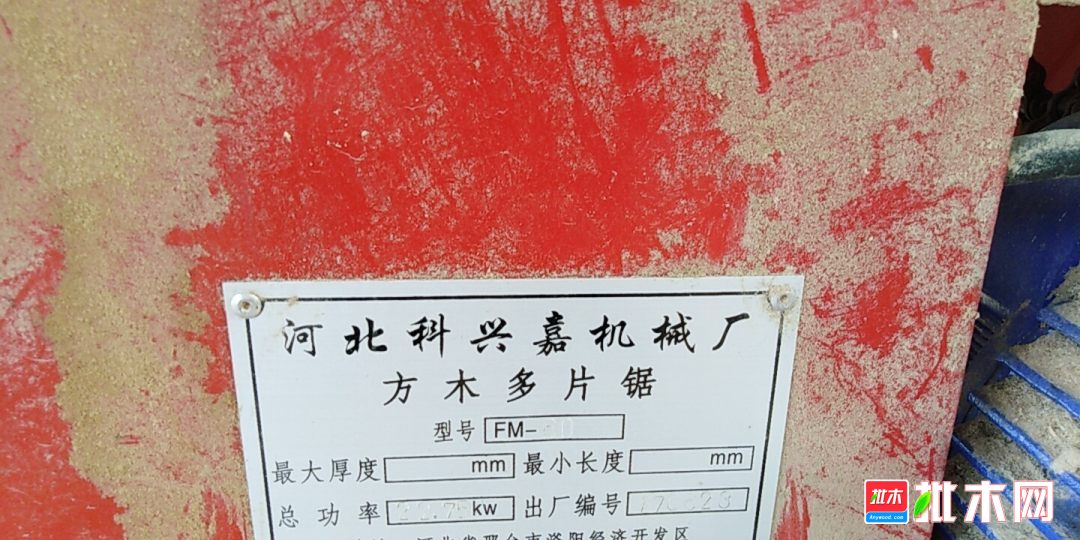 河北科兴嘉机械厂
方木多片锯
型号 FM-
最大厚度 mm 最小长度 mm
总功率 kw 出厂编号
河北省邢台市滏阳经济开发区
批木 批木网
Anywood.com